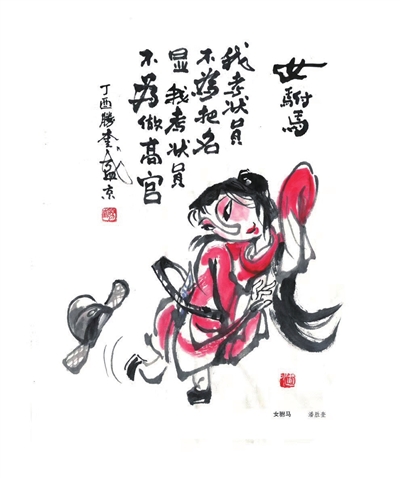 女駙馬
我考状員
不為把名
显 我考状員
不為做高官
丁酉勝奎
女驸马 潘胜奎